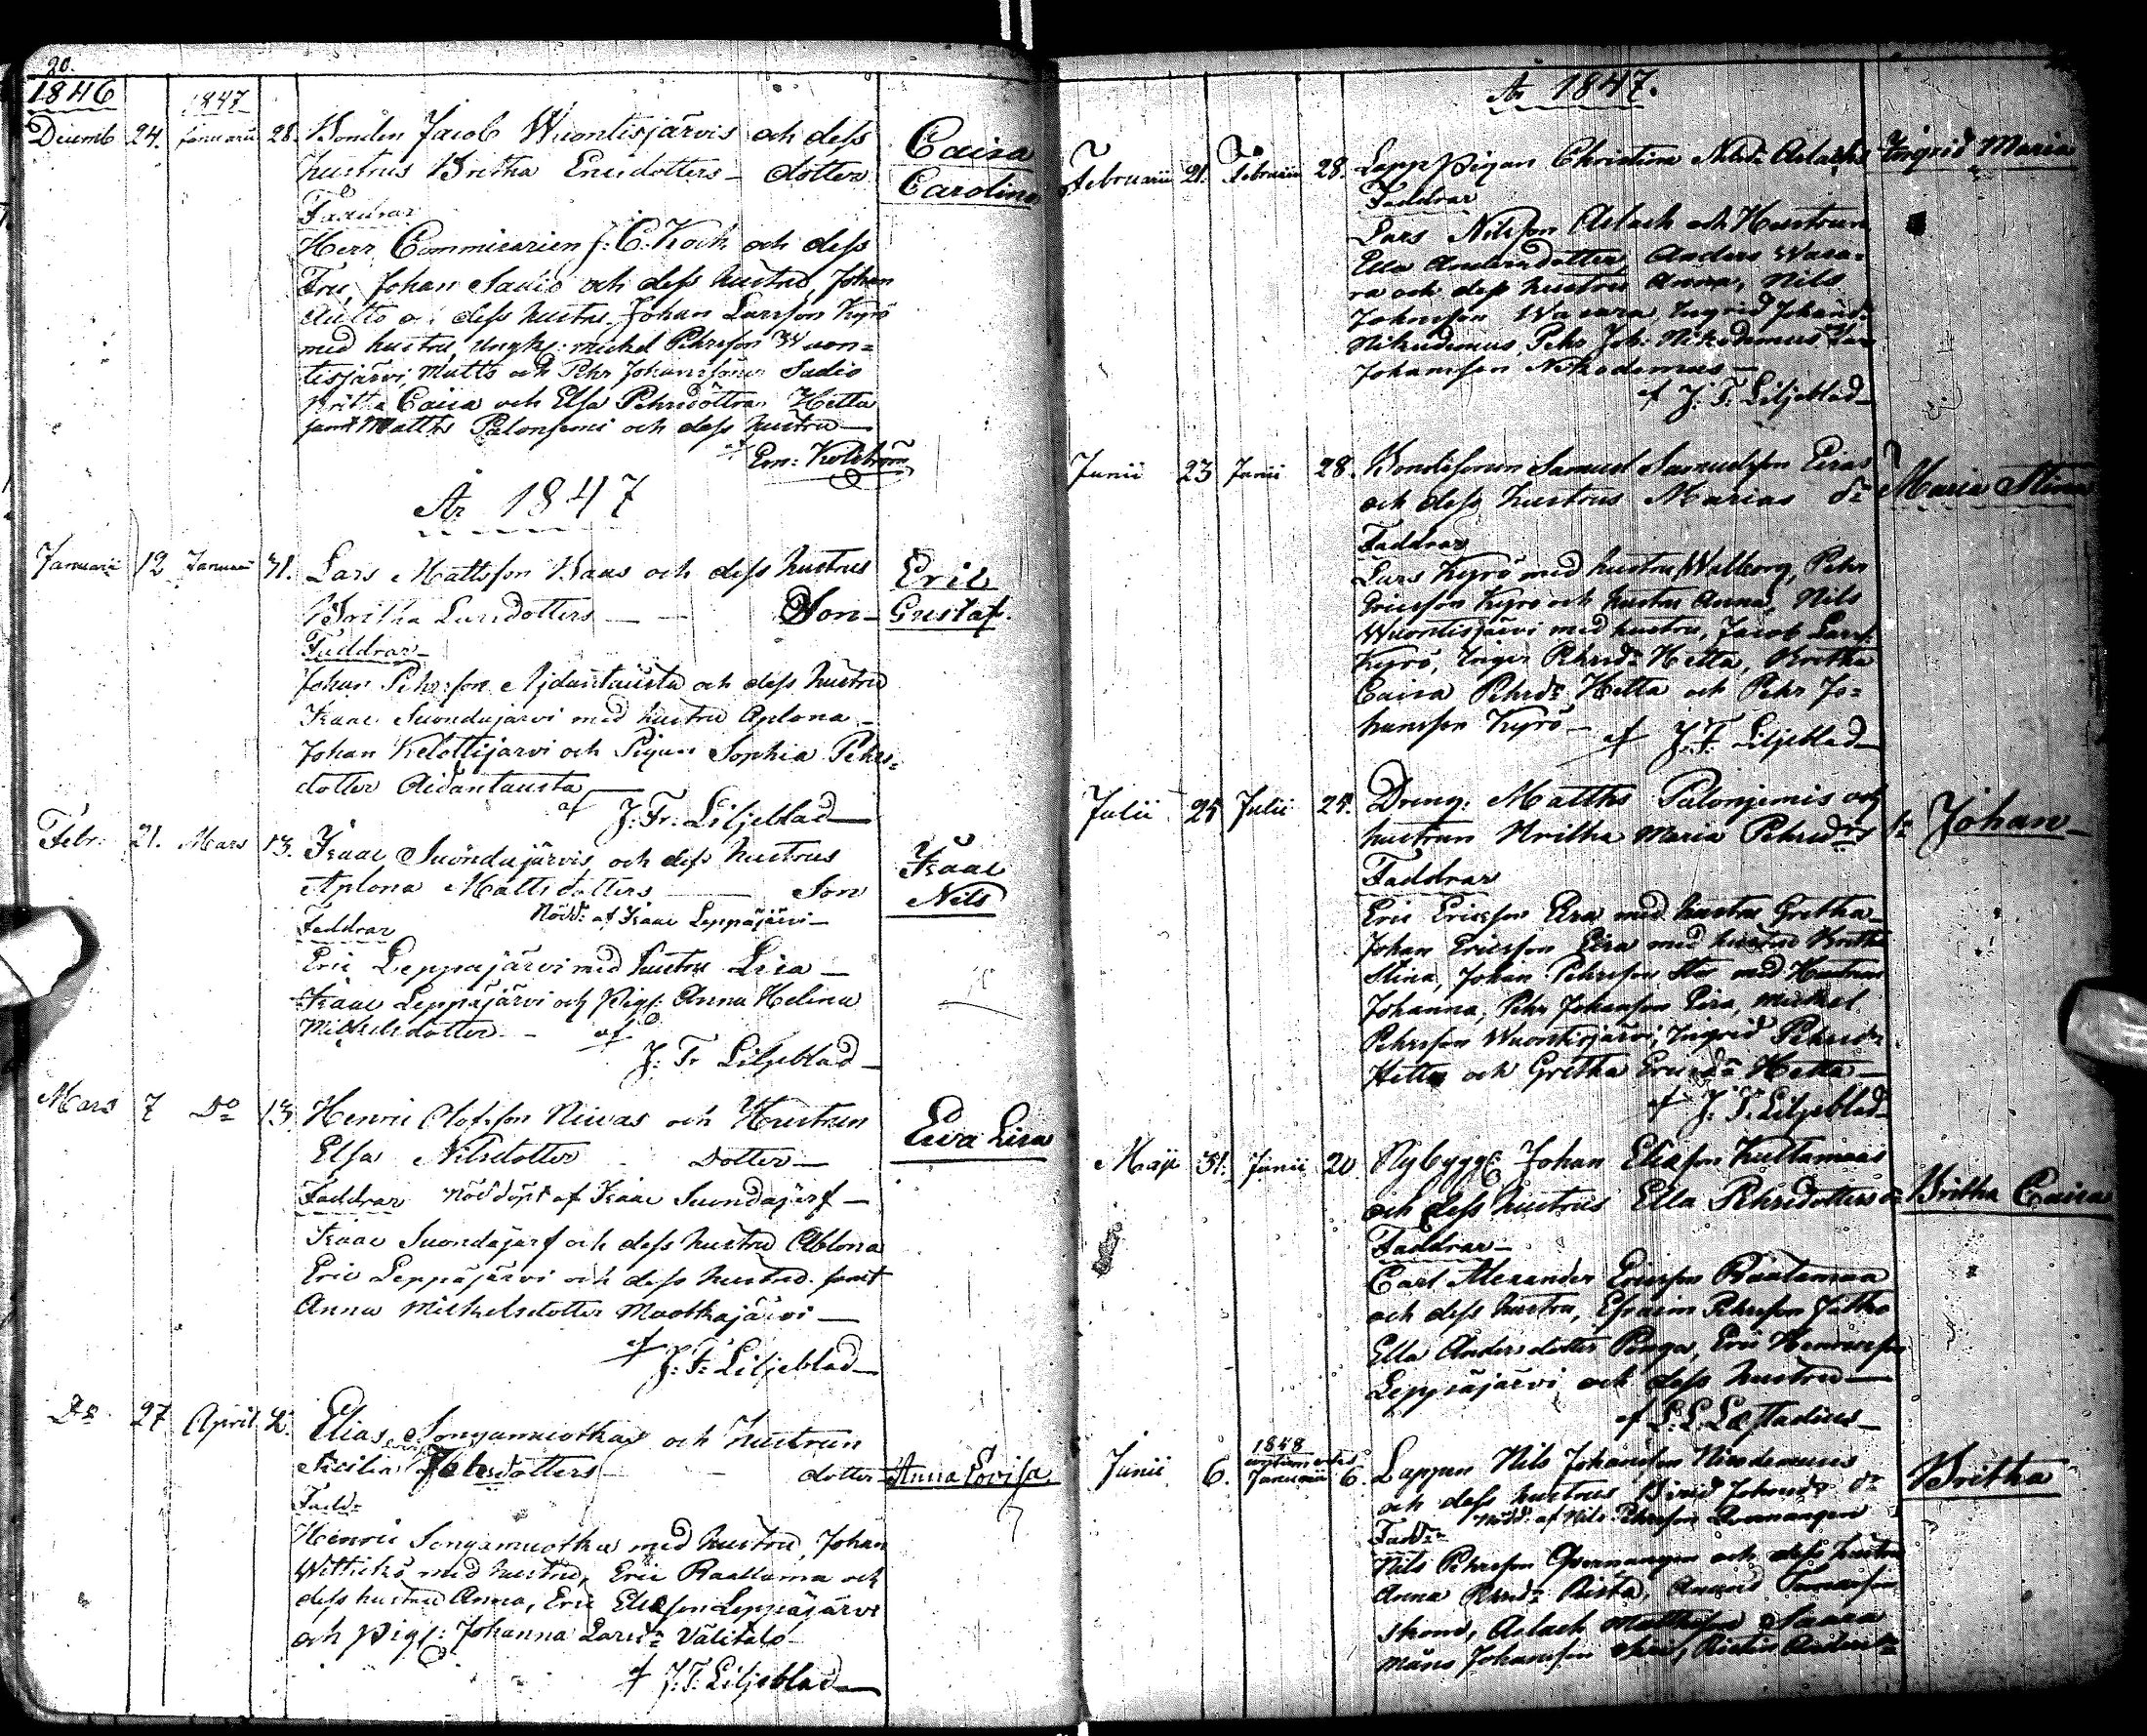 20.
1846
1847
Decemb 24. Januarii 28. Bonden Jacob Wuontisjärvis och dess Caisa
hustrus Britha Ericsdotters – dotter Carolina
Faddrar
Herr Commissarien J: C. Koch och dess
Fru, Johan Sadio och dess hustru, Johan
Aulto o. dess hustru Johan Larsson Kyrö
med hustru, Ungk: Michel Pehrsson Wuon=
tisjärvi, Matts och Pehr Johanssöner Sadio
Britha Caisa och Elsa Pehrsdöttrar Hetta
samt Matths Palonjemi och dess hustru —
af Em: Kolström
År 1847
Januarii 12 Januarii 31. Lars Mattsson Kaus och dess hustrus Eric
Britha Larsdotters — — Son – Gustaf.
Faddrar –
Johan Pehrsson Aidantausta och dess hustru
Isaac Suondajärvi med hustru Aplona –
Johan Kelottijärvi och Pigan Sophia Pehrs=
dotter Aidantausta —
af J. Fr. Liljeblad —
Febr. 21. Mars 13. Isaac Suondajärvis och dess hustrus Isaac
Aplona Mattsdotters — Son Nils
Faddrar Nödd: af Isaac Leppäjärvi –
Eric Leppäjärvi med hustru Lisa –
Isaac Leppäjärvi och Pig: Anna Helena
Michelsdotter – af
J: Fr Liljeblad –
Mars 7 Do 13. Henric Olofsson Niwas och Hustrun Eva Lisa
Elsa Nilsdotter Dotter —
Faddrar Nöddöpt af Isaac Suondajärf —
Isaac Suondajärf och dess hustru Ablona
Eric Leppäjärvi och dess hustru samt
Anna Michelsdotter Muotkajärvi —
af
J: Fr Liljeblad —
Do 27 April 2. Elias Songamuotkas och hustrun
Sicilia Johsdotters — dotter – Anna Lovisa
Fadd:
Henric Songamuotka med hustru, Johan
Wittickö med hustru, Eric Raattama och
dess hustru Anna, Eric Eliasson Leppäjärvi
och Pig: Johanna Larsd: Välitalo –
af J. F. Liljeblad —
År 1847.
Februarii 21. Februarii 28. Lapp Pigan Christina Nilsd: Aslacks Ingrid Maria
Faddrar
Lars Nilsson Aslack och Hustrun
Ella Andersdotter, Anders Wasa=
ra och dess hustru Anna, Nils
Johansson Wasara Ingrid Johansd:
Nikodemus, Pehr Joh: Nikodemus
Johansson Nikodemus –
af J. F. Liljeblad –
Junii 23 Junii 28. Bondesonen Samuel Samuelsson Eiras
och dess hustrus Marias dr Maria Stina
Faddrar
Lars Kyrö med hustru Walborg, Pehr
Ericsson Kyrö och hustru Anna, Nils
Wuontisjärvi med hustru, Jacob Larss:
Kyrö, Inger Pehrsd: Hetta, Britha
Caisa Pehrsdr Hetta och Pehr Jo=
hansson Kyrö –
af J. F. Liljeblad —
Julii 24 Julii 24. Dreng: Matths Palonjemis och
hustrun Britha Maria Pehrsdrs Johan –
Faddrar
Eric Ericsson Eira med hustru Gretha –
Johan Ericsson Eira med hustru Britha
Stina, Johan Pehrsson med Hustrun
Johanna, Pehr Johansson Eira, Michel
Pehrsson Wuontisjärvi, Ingrid Pehrsdr
Hetta och Gretha Ericsdr Hetta —
af J. F. Liljeblad
Maji 31. Junii 20 Nybygg: Johan Eliasson Kuttainens
och dess hustrus Ella Pehrsdotters dr Britha Caisa
Faddrar –
Carl Alexander Ericsson Raatamaa
och dess hustru, Efraim Pehrsson Jutko
Ella Andersdotter Panga, Eric Henricsson
Leppäjärvi och dess hustru —
af L: L: Læstadius –
1848
Junii 6. Januarii 6. Lappen Nils Johansson Nicodemus Britha
och dess hustrus Johansd: dr
Nödd: af Nils Pehrsson
Fadd:
Nils Pehrsson och dess hustru
Anna Pehrsdr
Aslack Mattsson
Måns Johansson